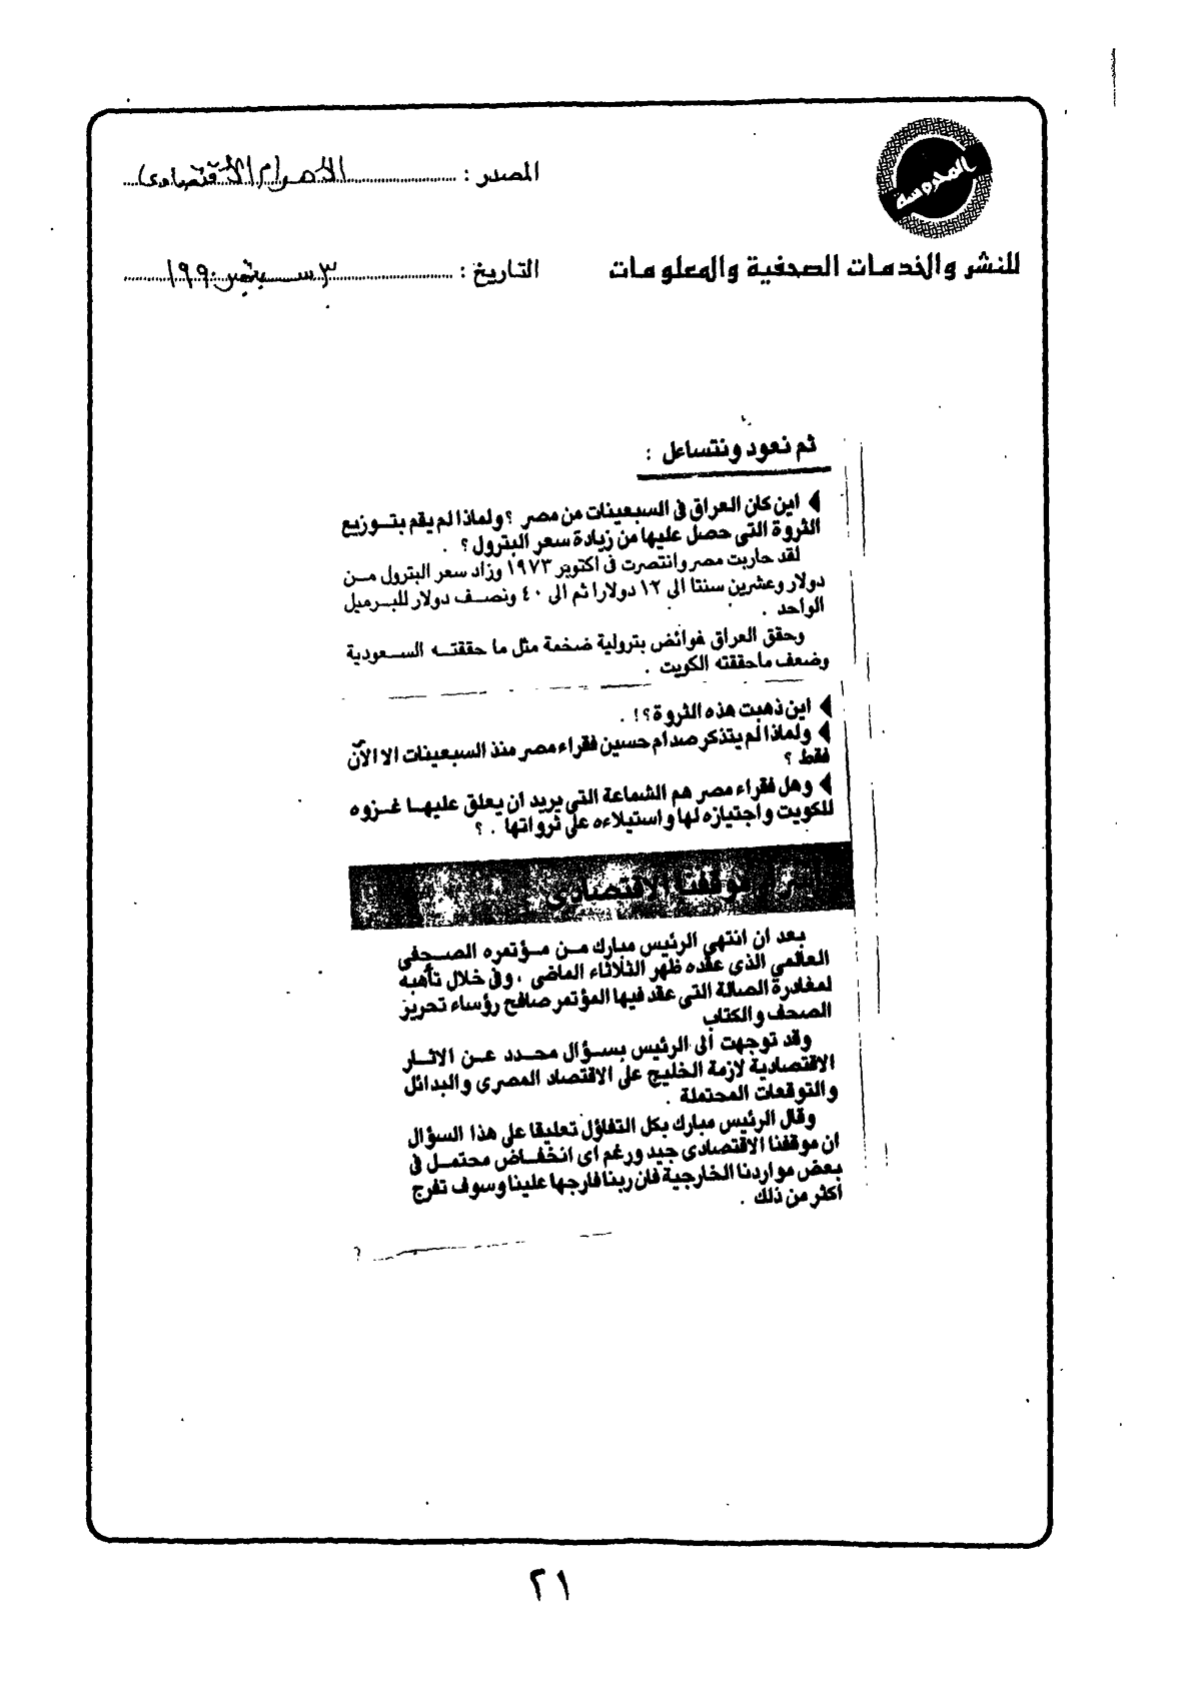 المحروسة
للنشر والخدمات الصحفية والمعلومات
المصدر : الاهرام الاقتصادى
التاريخ : ٣ سبتمبر ١٩٩٠
ثم نعود ونتساءل :
اين كان العراق فى السبعينات من مصر ؟ ولماذا لم يقم بتوزيع
الثروة التى حصل عليها من زيادة سعر البترول ؟ .
لقد حاربت مصر وانتصرت فى اكتوبر ١٩٧٣ وزاد سعر البترول من
دولار وعشرين سنتا الى ١٢ دولارا ثم الى ٤٠ ونصف دولار للبرميل
الواحد .
وحقق العراق فوائض بترولية ضخمة مثل ما حققته السعودية
وضعف ماحققته الكويت .
اين ذهبت هذه الثروة ؟! .
ولماذا لم يتذكر صدام حسين فقراء مصر منذ السبعينات الا الآن
فقط ؟
وهل فقراء مصر هم الشماعة التى يريد ان يعلق عليها غزوه
للكويت واجتيازه لها واستيلاءه على ثرواتها . ؟
موقفنا الاقتصادى
بعد ان انتهى الرئيس مبارك من مؤتمره الصحفى
العالمى الذى عقده ظهر الثلاثاء الماضى ، وفى خلال تأهبه
لمغادرة الصالة التى عقد فيها المؤتمر صافح رؤساء تحرير
الصحف والكتاب
وقد توجهت الى الرئيس بسؤال محدد عن الاثار
الاقتصادية لازمة الخليج على الاقتصاد المصرى والبدائل
والتوقعات المحتملة .
وقال الرئيس مبارك بكل التفاؤل تعليقا على هذا السؤال
ان موقفنا الاقتصادى جيد ورغم اى انخفاض محتمل فى
بعض مواردنا الخارجية فان ربنا فارجها علينا وسوف تفرج
اكثر من ذلك .
٢١